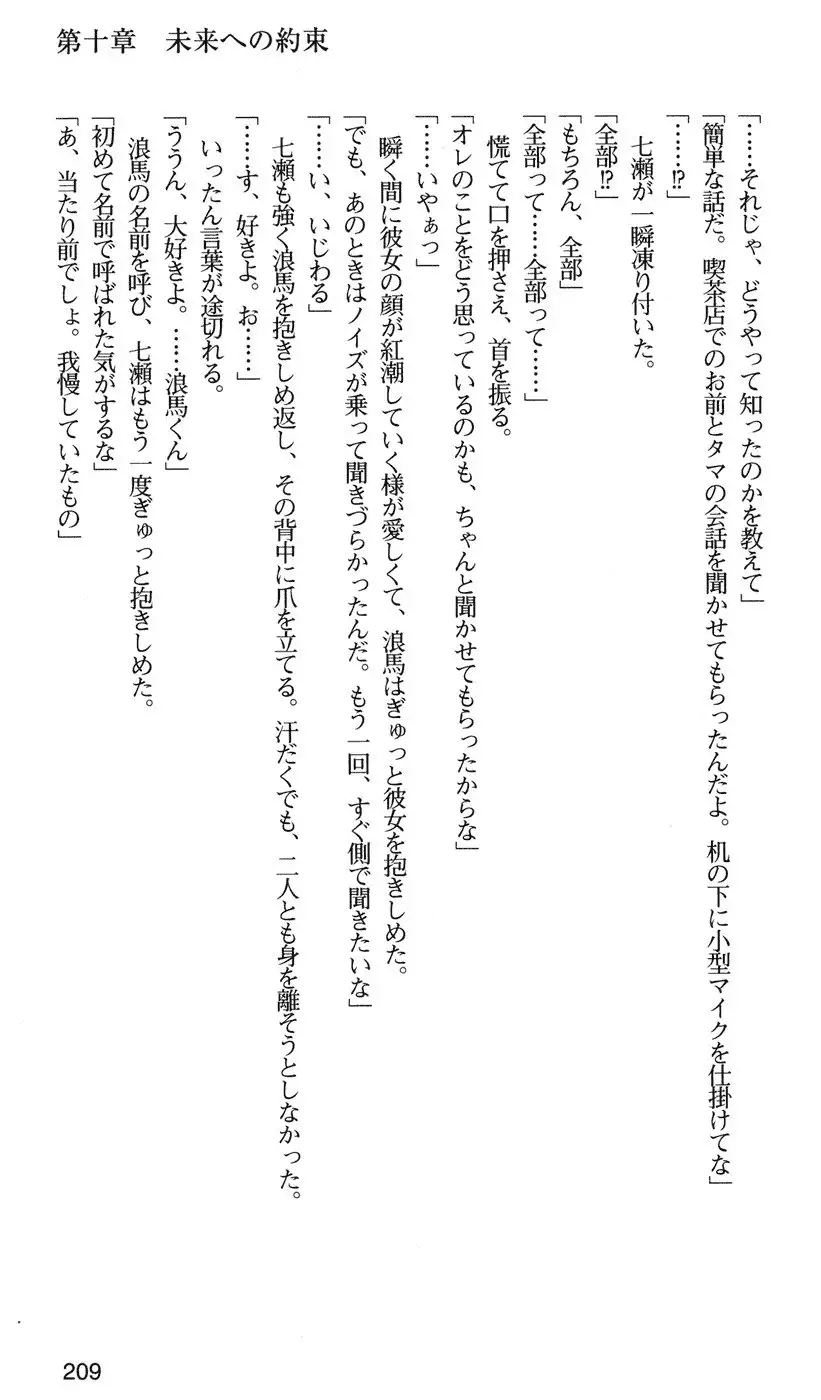 第十章　未来への約束
「……それじゃ、どうやって知ったのかを教えて」
「簡単な話だ。喫茶店でのお前とタマの会話を聞かせてもらったんだよ。机の下に小型マイクを仕掛けてな」
「……⁉」
　七瀬が一瞬凍り付いた。
「全部⁉」
「もちろん、全部」
「全部って……全部って……」
　慌てて口を押さえ、首を振る。
「オレのことをどう思っているのかも、ちゃんと聞かせてもらったからな」
「……いやぁっ」
　瞬く間に彼女の顔が紅潮していく様が愛しくて、浪馬はぎゅっと彼女を抱きしめた。
「でも、あのときはノイズが乗って聞きづらかったんだ。もう一回、すぐ側で聞きたいな」
「……い、いじわる」
　七瀬も強く浪馬を抱きしめ返し、その背中に爪を立てる。汗だくでも、二人とも身を離そうとしなかった。
「……す、好きよ。お……」
　いったん言葉が途切れる。
「ううん、大好きよ。……浪馬くん」
　浪馬の名前を呼び、七瀬はもう一度ぎゅっと抱きしめた。
「初めて名前で呼ばれた気がするな」
「あ、当たり前でしょ。我慢していたもの」
209